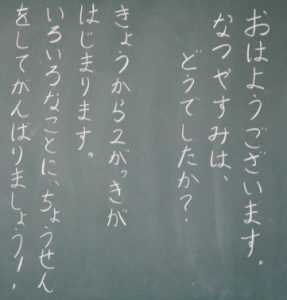 おはようございます。
なつやすみは、
どうでしたか？
きょうから2がっきが
はじまります。
いろいろなことに、ちょうせん
をしてがんばりましょう！